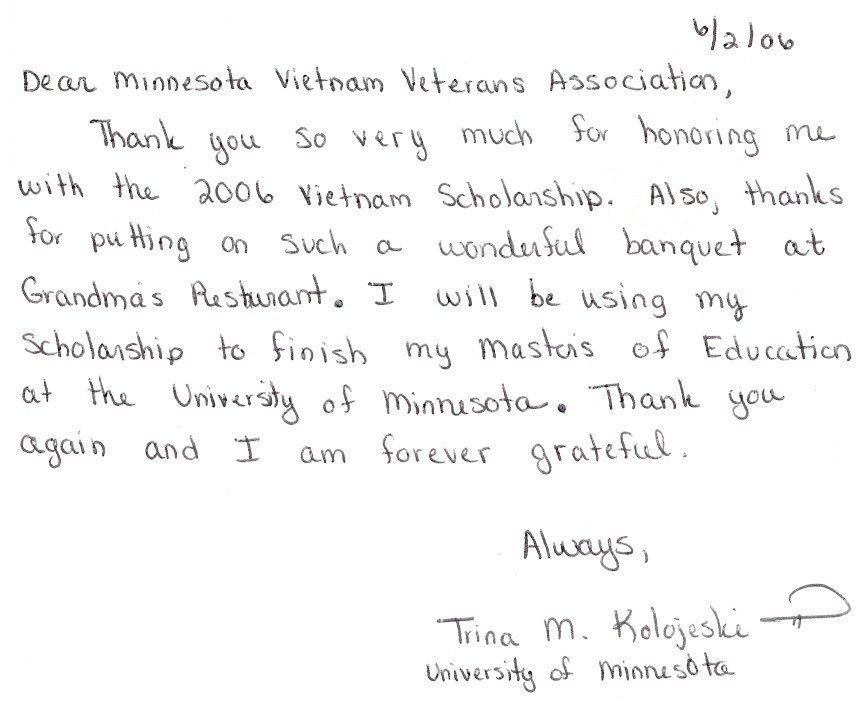 6/2/06
Dear Minnesota Vietnam Veterans Association,
Thank you so very much for honoring me
with the 2006 Vietnam Scholarship. Also, thanks
for putting on such a wonderful banquet at
Grandma's Resturant. I will be using my
Scholarship to finish my masters of Education
at the University of Minnesota. Thank you
again and I am forever grateful.
Always,
Trina M. Kolojeski
University of Minnesota